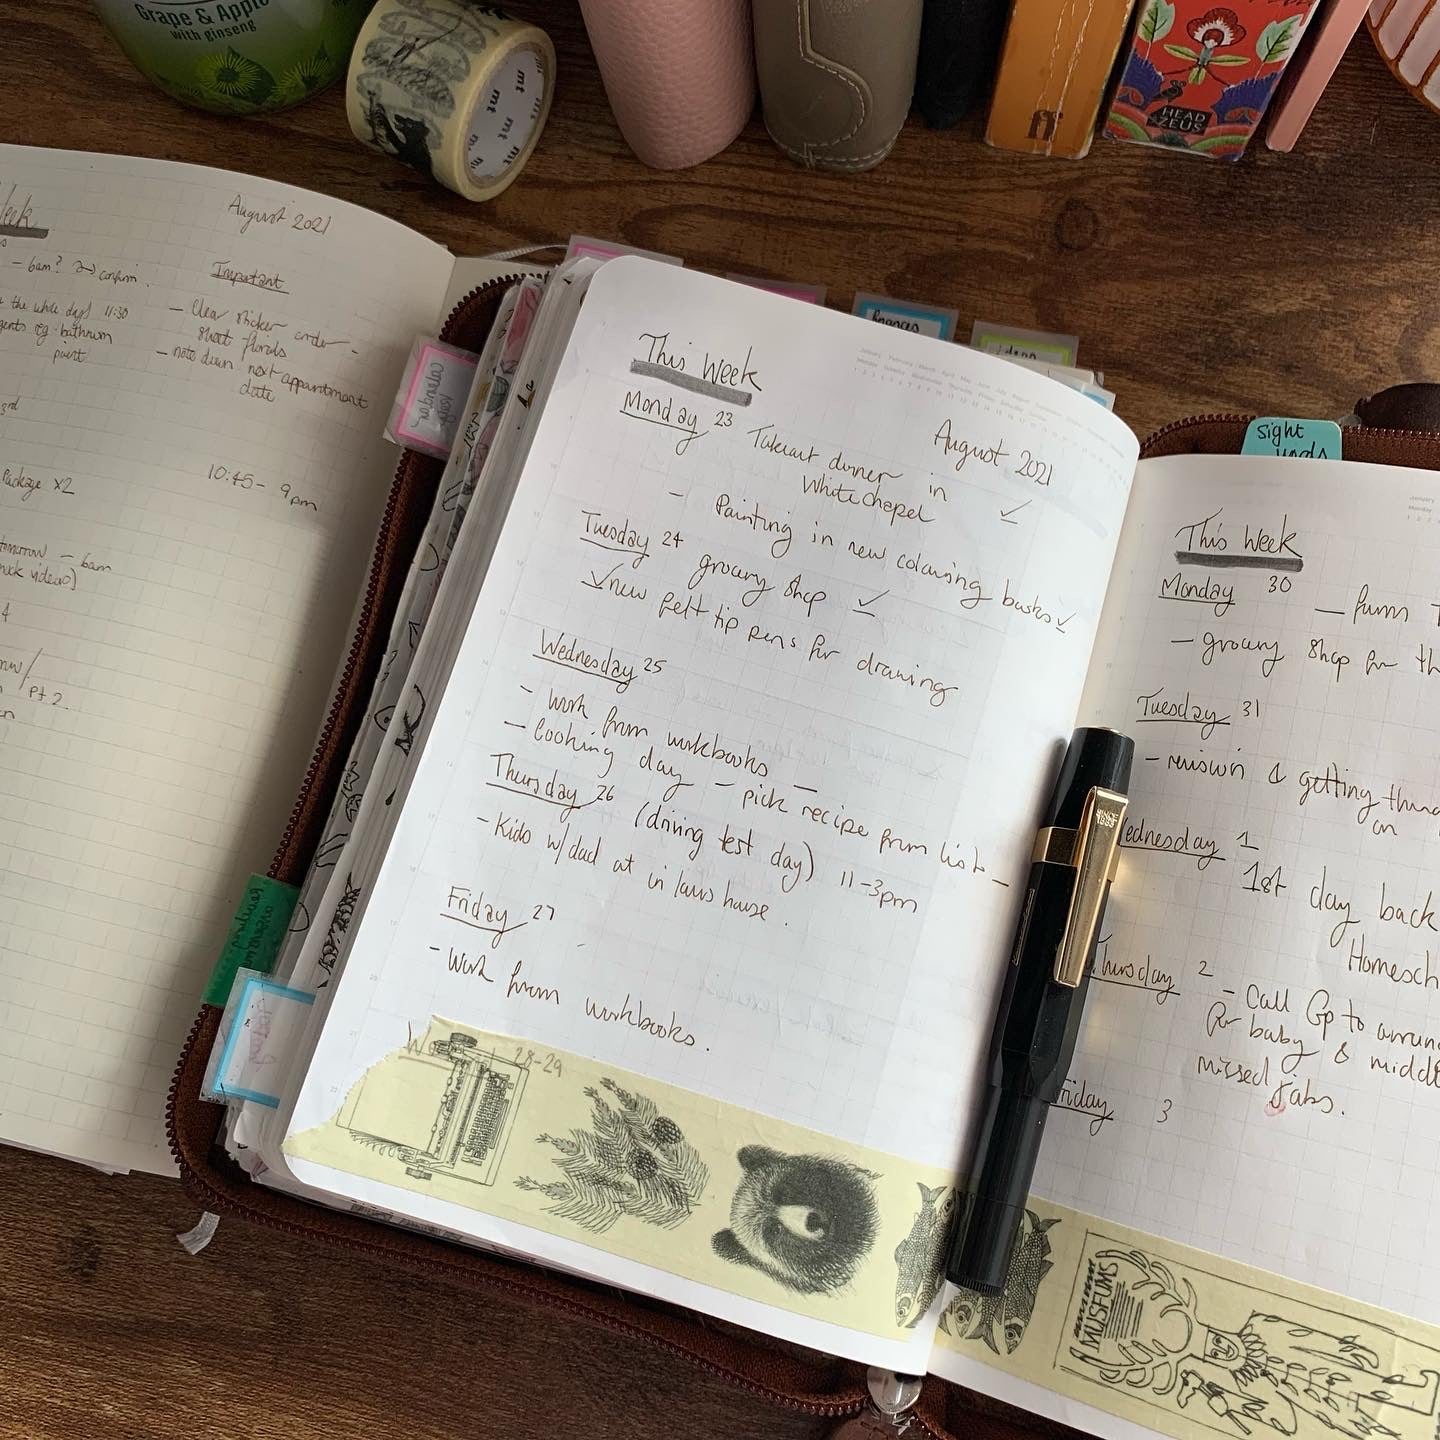 Grape & Apple
with ginseng
mt mt mt mt
ff
HEAD
ZEUS
August 2021
- 6am? confirm
Important
the whole day) 11:30
eg. bathroom
paint
- Clear sticker order -
short florals
- note down next appointment
date
3rd
Package x2
10:45 - 9pm
tomorrow - 6am
videos)
4
pt 2.
finances
ideas
sight
words
This Week
August 2021
Monday 23 Takeout dinner in
Whitechapel ✓
- Painting in new colouring books ✓
Tuesday 24 grocery shop ✓
✓ new felt tip pens for drawing
Wednesday 25
- work from workbooks
- Cooking day - pick recipe from list -
Thursday 26 (driving test day) 11-3pm
- Kids w/ dad at in laws house.
Friday 27
- Work from workbooks.
28-29
This Week
Monday 30
- grocery shop for
Tuesday 31
- revision & getting
on
Wednesday 1
1st day back
Homesch
Thursday 2 - Call Gp to
for baby &
missed jabs.
Friday 3
SINCE
1883
MUSEUMS